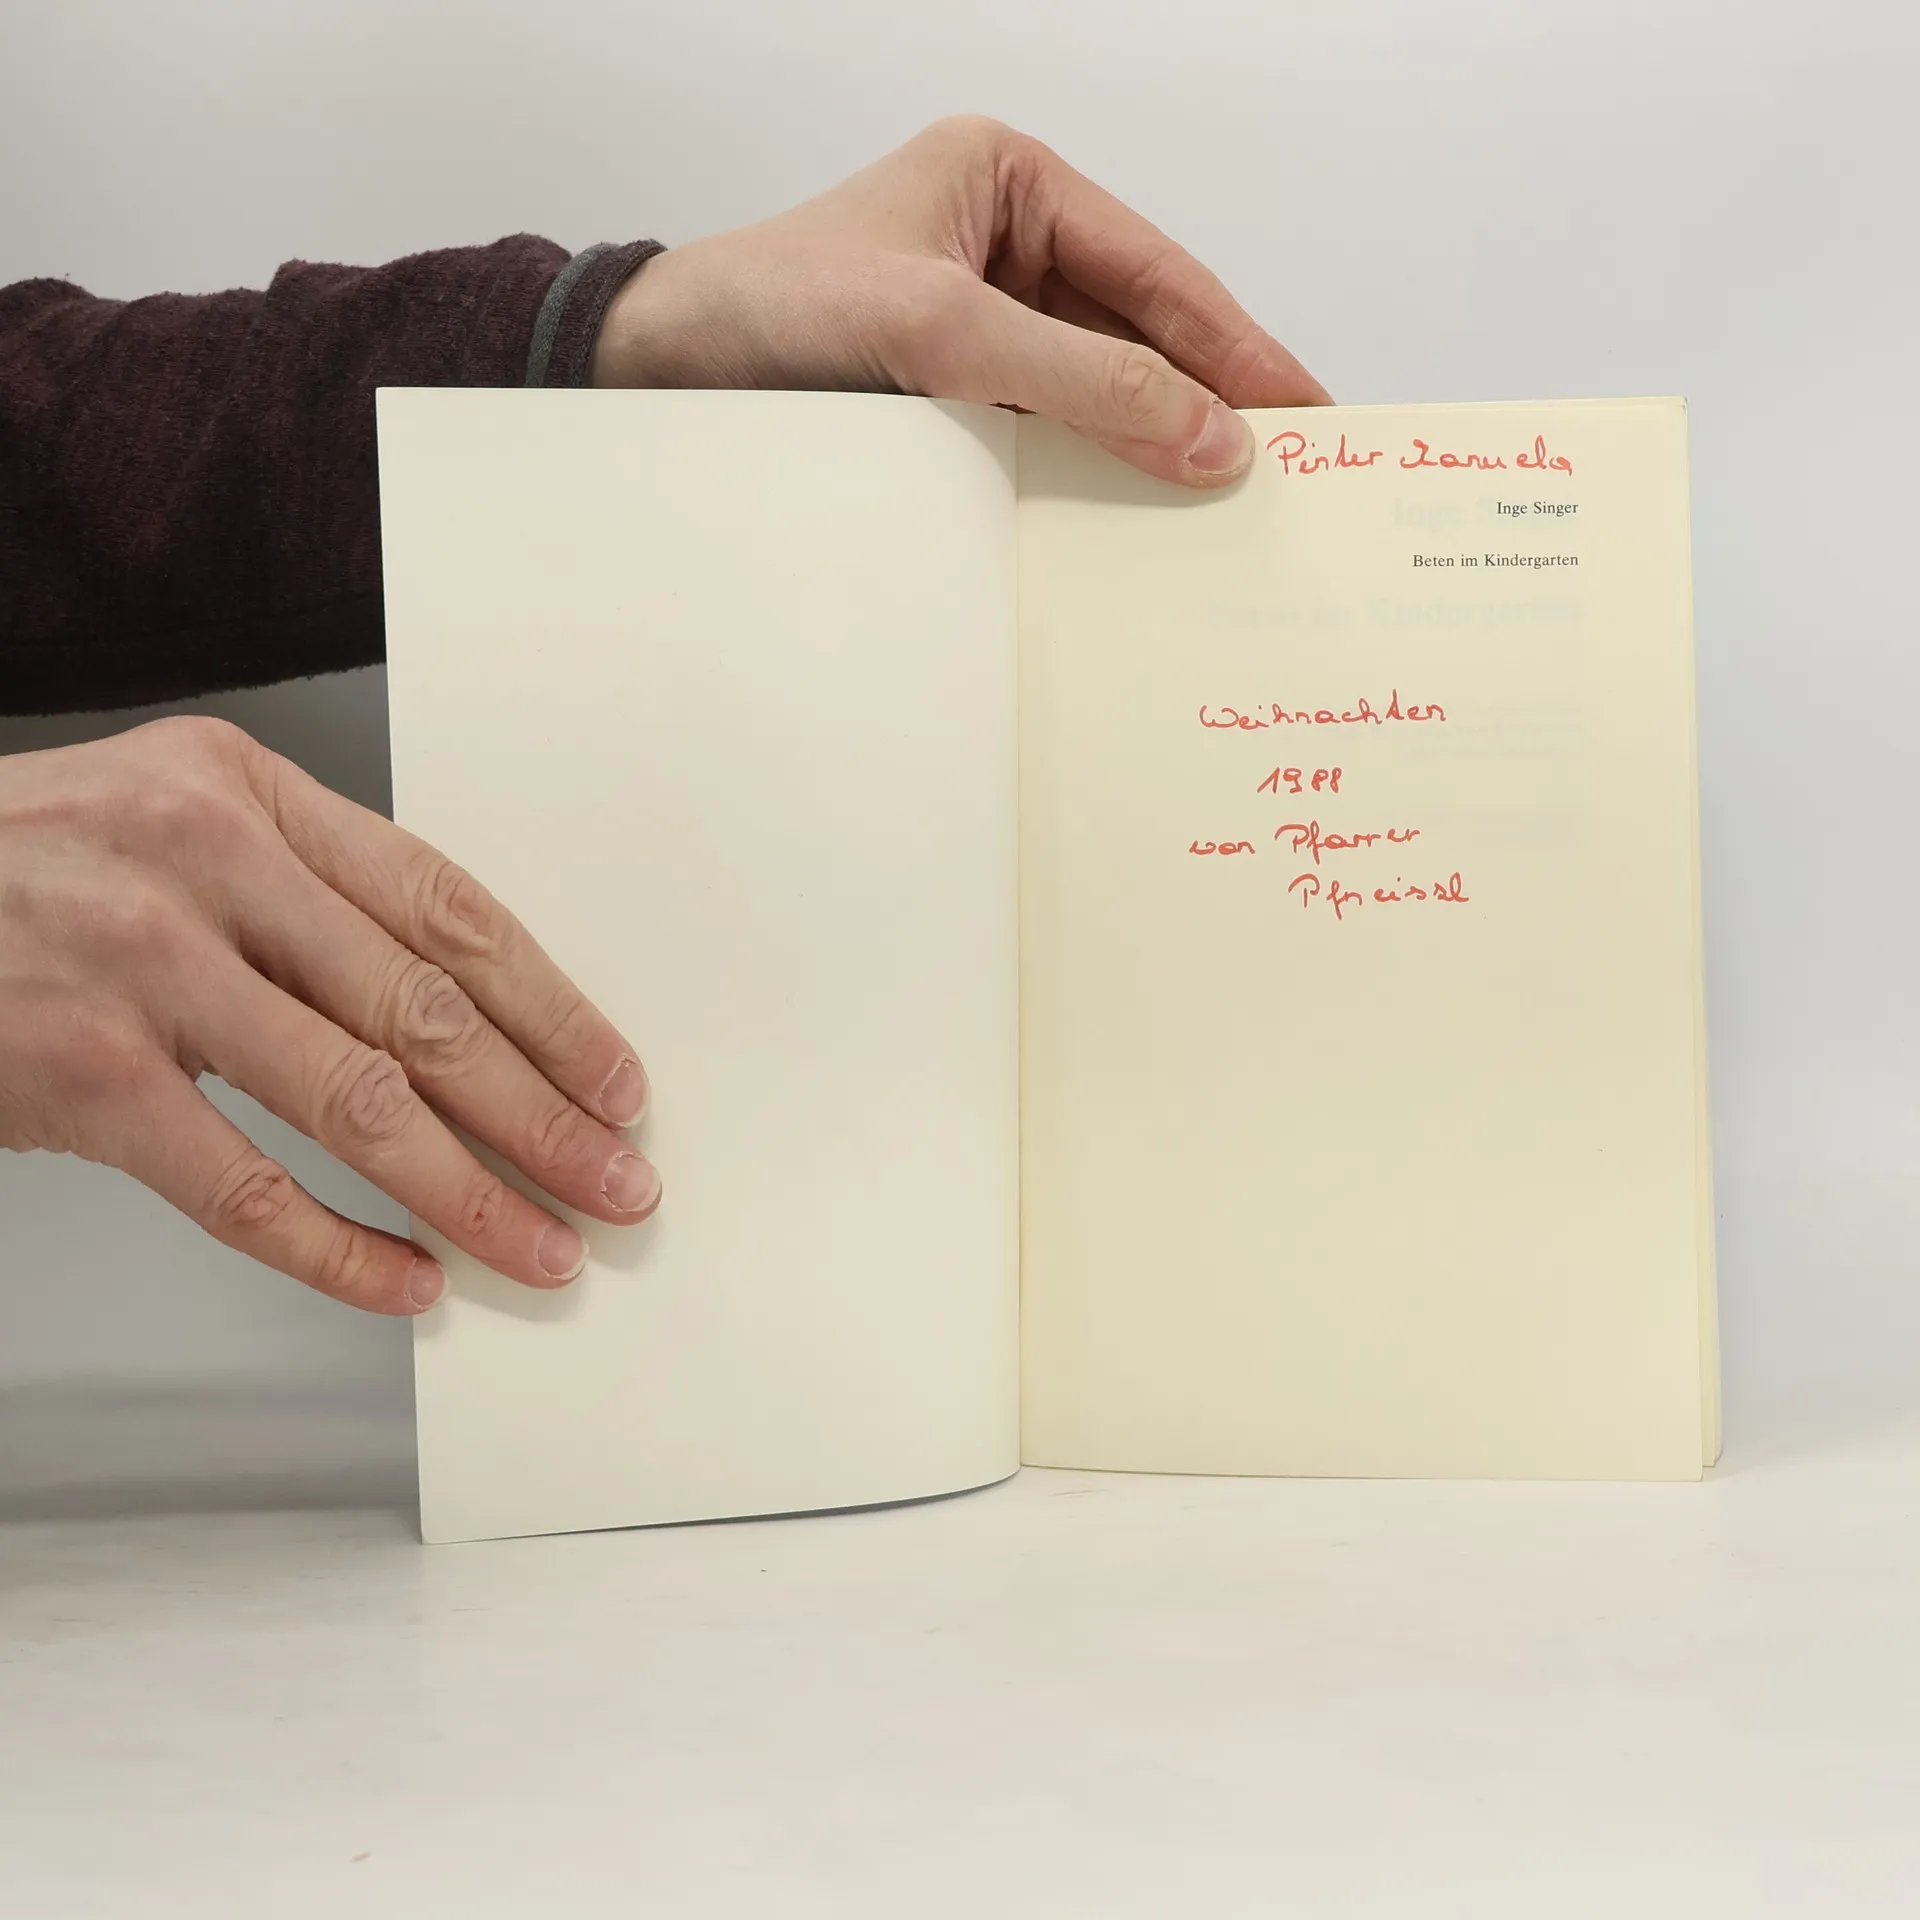 Pinter Manuela
Inge Singer
Beten im Kindergarten
Weihnachten
1988
von Pfarrer
Pfneissl